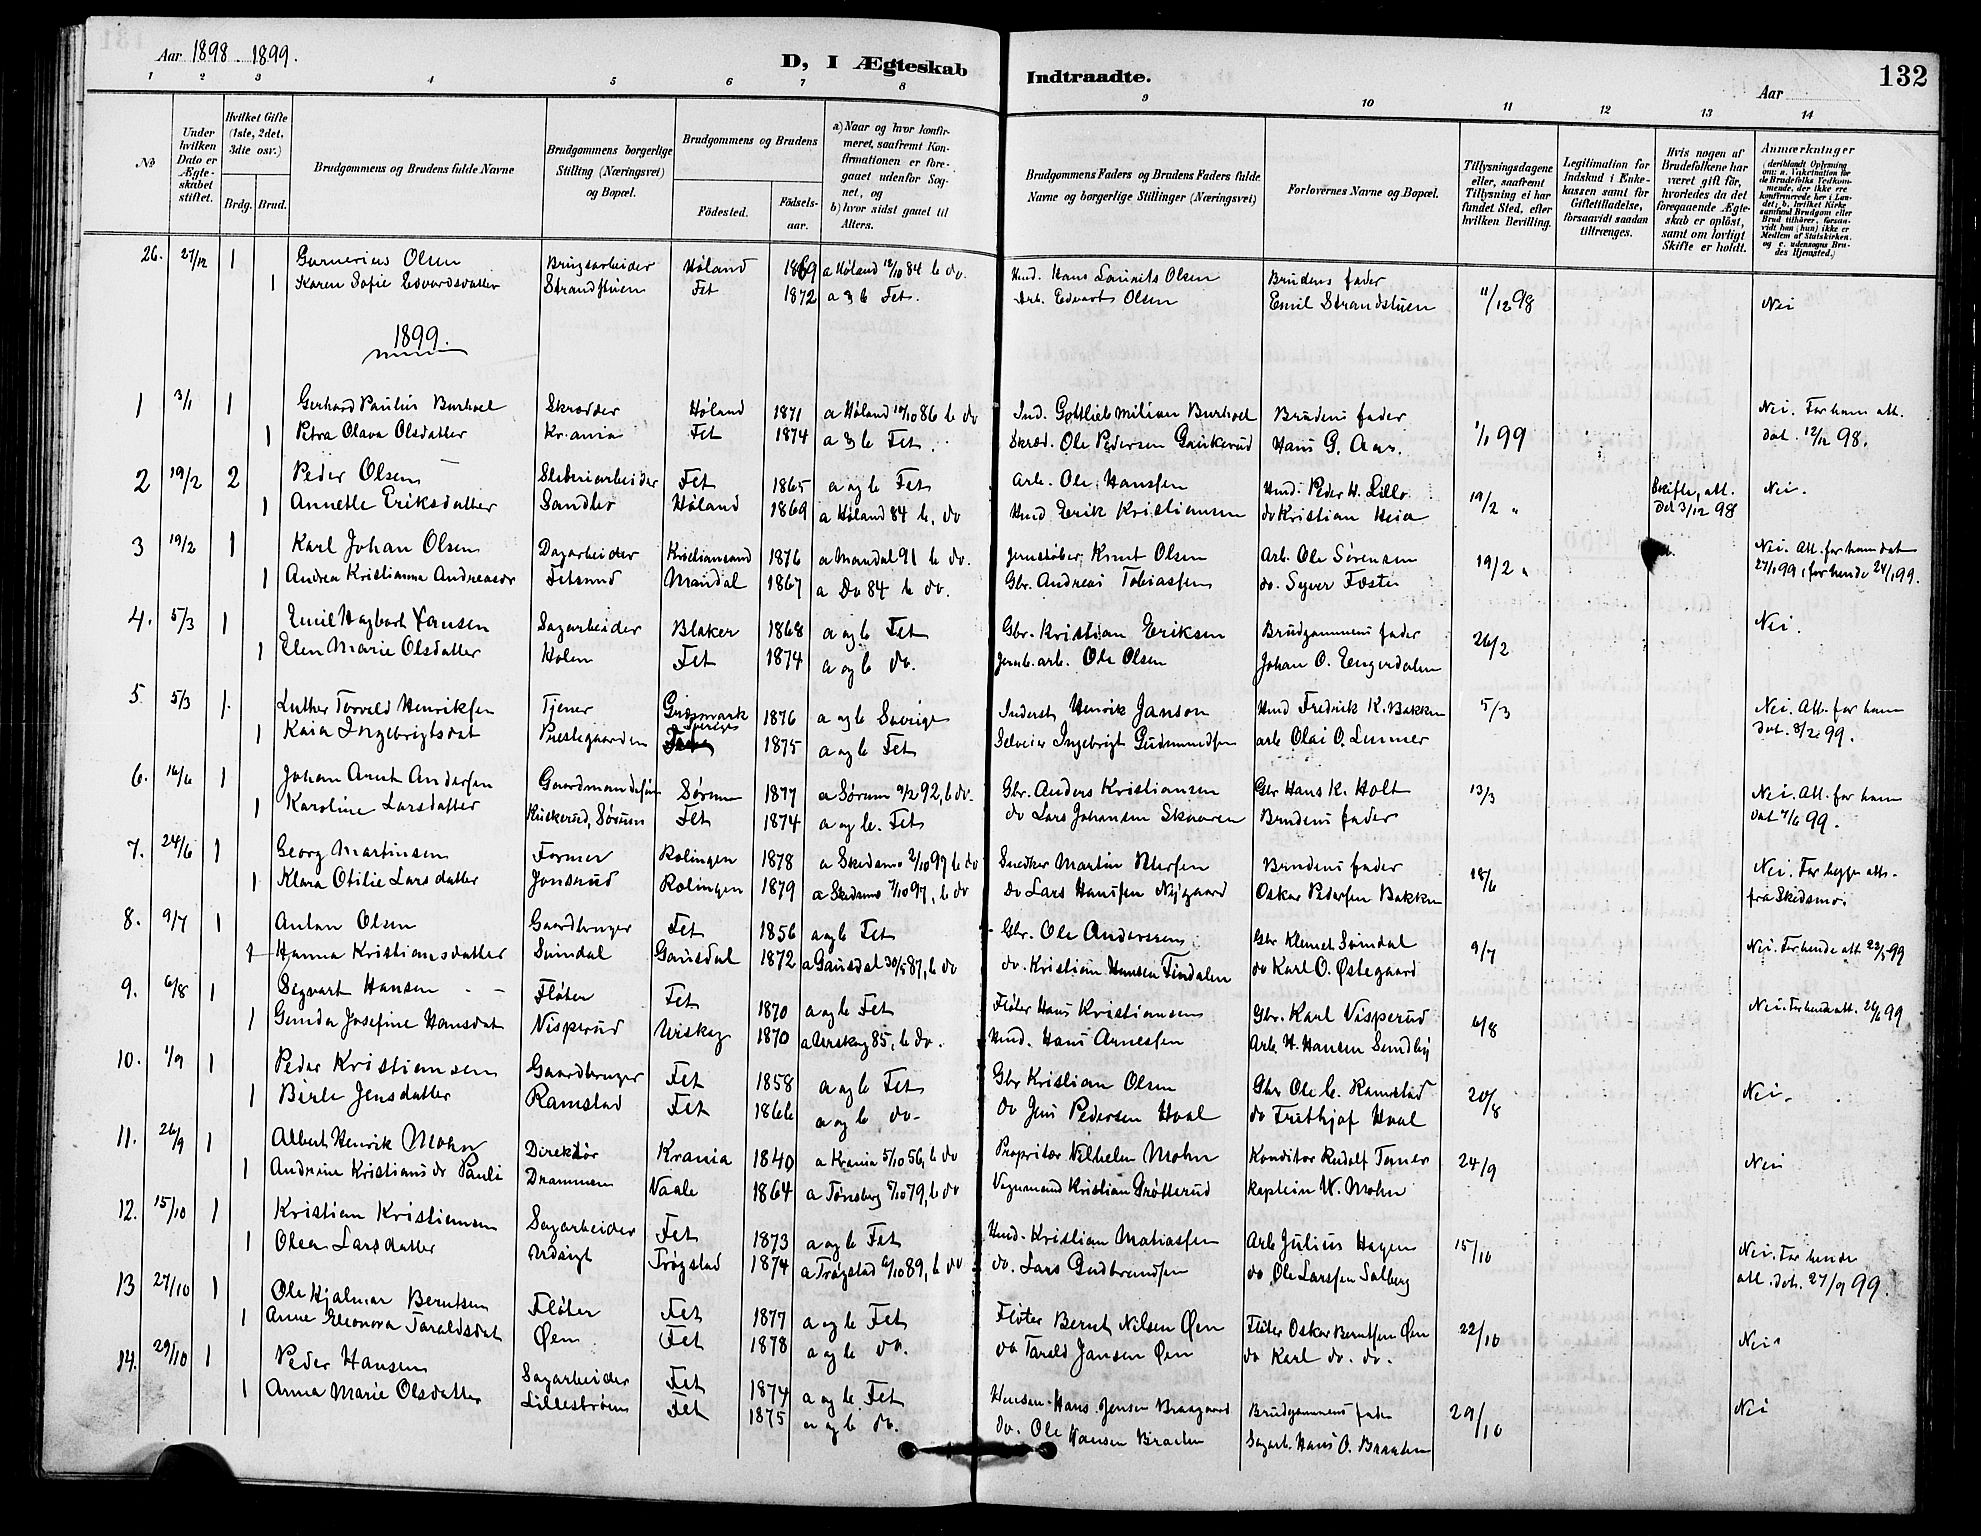 Aar 1898 1899.
D, I Ægteskab Indtraadte.
Aar
132
1 2 3 4 5 6 7 8 9 10 11 12 13 14
No
Under hvilken Dato er Ægteskabet stiftet.
Hvilket Gifte (1ste, 2det, 3die osv.)
Brdg. Brud.
Brudgommens og Brudens fulde Navne
Brudgommens borgerlige Stilling (Næringsvei) og Bopæl.
Brudgommens og Brudens
Födested. Födsels-aar.
a) Naar og hvor konfirmeret, saafremt Konfirmationen er foregaaet udenfor Sognet, og
b) hvor sidst gaaet til Alters.
Brudgommens Faders og Brudens Faders fulde Navne og borgerlige Stillinger (Næringsvei)
Forlovernes Navne og Bopæl.
Tillysningsdagene eller, saafremt Tillysning ei har fundet Sted, efter hvilken Bevilling.
Legitimation for Indskud i Enkekassen samt for Giftetilladelse, forsaavidt saadan tiltrænges.
Hvis nogen af Brudefolkene har været gift för, hvorledes da det foregaaende Ægteskab er oplöst, samt om lovligt Skifte er holdt.
Anmærkninger (deriblandt Oplysning om: a. Vakcination for de Brudefolks Vedkommende, der ikke ere konfirmerede her i Landet; b. hvilket Kirkesamfund Brudgom eller Brud tilhører, forsaavidt han (hun) ikke er Medlem af Statskirken, og c. udensogns Brudes Hjemsted.)
26. 27/12 1 Gunerius Olsen Brugsarbeider Høland 1869 a Høland 12/10 84 b do. Hmd. Hans Laurits Olsen Brudens fader 11/12 98 Nei
1 Karen Sofie Edvardsdatter Strandstuen Fet 1872 a & b Fet. Arb. Edvart Olsen Emil Strandstuen
1899.
1 3/1 1 Gerhard Paulius Burhoel Skrædder Høland 1871 a Høland 10/10 86 b do Ind. Gottlieb Milian Burhoel Brudens fader 1/1 99 Nei. For ham att.
1 Petra Olava Olsdatter Kr.ania Fet 1874 a & b Fet. Skræd. Ole Pedersen Gankerud Hans G. Aas. dat. 12/12 98.
2 19/2 2 Peder Olsen Sliberiarbeider Fet 1865 a og b Fet Arb. Ole Hanssen Hmd. Peder H. Lillo 19/2 " Skifte, att. Nei.
1 Annette Eriksdatter Sandler Høland 1869 a Høland 84 b. do Hmd Erik Kristiansen do Kristian Heia dat 3/12 98
3 19/2 1 Karl Johan Olsen Dagarbeider Kristiansand 1876 a Mandal 91 b do. Jernstøber Knut Olsen Arb. Ole Sørensen 19/2 " Nei. Att. for ham dat
1 Andrea Kristianna Andreasdr Fetsund Mandal 1867 a Do 84 b do. Gbr. Andreas Tobiassen do. Syver Fosten 27/1 99, for hende 24/1 99.
4. 5/3 1 Emil Hagbart Jansen Sagarbeider Blaker 1868 a og b Fet Gbr. Kristian Eriksen Brudgommens fader 26/2 Nei.
1 Elen Marie Olsdatter Holen Fet 1874 a og b do. Jernb. arb. Ole Olsen Johan O. Engerdalen
5. 5/3 1. Luther Torvald Henriksen Tjener Gräsmark Sverige 1876 a og b Sverige Inderst Henrik Janson Hmd Fredrik K. Bakken 5/3 Nei. Att. for ham
1 Kaia Ingebrigtsdat Prestegaarden 1875 a og b Fet Selveier Ingebrigt Gudmundsen arb Olai O. Lunner dat. 8/2 99.
6. 16/6 1 Johan Arnt Andersen Gaardmandssøn Sørum 1877 a Sørum 9/2 92, b do. Gbr. Anders Kristiansen Gbr Hans K. Holt 13/3 Nei. Att. for ham
1 Karoline Larsdatter Kuskerud, Sørum Fet 1874 a og b. Fet do Lars Johansen Skaaren Brudens fader dat 7/6 99.
7. 24/6 1 Georg Martinsen Former Rolingen 1878 a Skedsmo 2/10 99 b do Snedker Martin Petersen Brudens fader 18/6 Nei. For begge att.
1 Klara Otilie Larsdatter Jonsrud Rolingen 1879 a Skedsmo 7/10 97, b do do Lars Hanssen Nygaard Oskar Pedersen Bakken fra Skedsmo.
8. 9/7 1 Anton Olsen Gaardbruger Fet 1856 a og b Fet Gbr. Ole Anderssen Gbr Klemet Svindal 9/7 Nei. For hende att. 23/5 99
1 Hanna Kristiansdatter Svindal Gausdal 1872 a Gausdal 30/5 87, b do do. Kristian Hansen Findalen do Karl O. Østegaard
9. 6/8 1 Segvart Hansen Fløter Fet 1870 a og b Fet Fløter Hans Kristiansen Gbr. Karl Visperud 6/8 Nei. For hende att. 26/6 99
1 Gunda Josefine Hansdat Visperud Urskog 1870 a Urskog 85, b do. Hmd. Hans Arnessen Arb. H. Hansen Sundby
10. 1/9 1 Peder Kristiansen Gaardbruger Fet 1858 a og b Fet Gbr Kristian Olsen Gbr Ole C. Ramstad 20/8 Nei.
1 Birte Jensdatter Ramstad Fet 1866 a og b do. do Jens Pedersen Hval do Frithjof Hval
11. 26/9 1 Albert Henrik Mohn Direktør Krania 1840 a Krania 5/10 56, b do Propritær Vilhelm Mohn Konditor Rudolf Tomer 24/9 Nei
1 Andrine Kristiansdr Pauli Drammen Vaale 1864 a Tønsberg 5/10 79, b do Vognmand Kristian Grøtterud kaptein W. Mohn
12. 15/10 1 Kristian Kristiansen Sagarbeider Fet 1873 a og b Fet Hmd. Kristian Matiassen Arb Julius Hagen 15/10 Nei. For hende
1 Olea Larsdatter Udsigt Trøgstad 1874 a Trøgstad 6/10 89, b do do. Lars Gudbrandsen do Ole Larssen Solberg att. dat. 27/9 99.
13 27/10 1 Ole Hjalmar Berntsen Fløter Fet 1877 a og b Fet Fløter Bernt Nilsen Øen Fløter Oskar Berntsen Øen 22/10 Nei
1 Anne Eleonora Taraldsdat Øen Fet 1878 a og b do. do Tarald Jansen Øen do Karl do. do.
14. 29/10 1 Peder Hansen Sagarbeider Fet 1874 a og b Fet Hans Jensen Braagaard Brudgommens fader 29/10 Nei
1 Anna Marie Olsdatter Lillestrøm Fet 1875 a og b do. do. Ole Hansen Braaten Sagarb. Hans O. Braaten